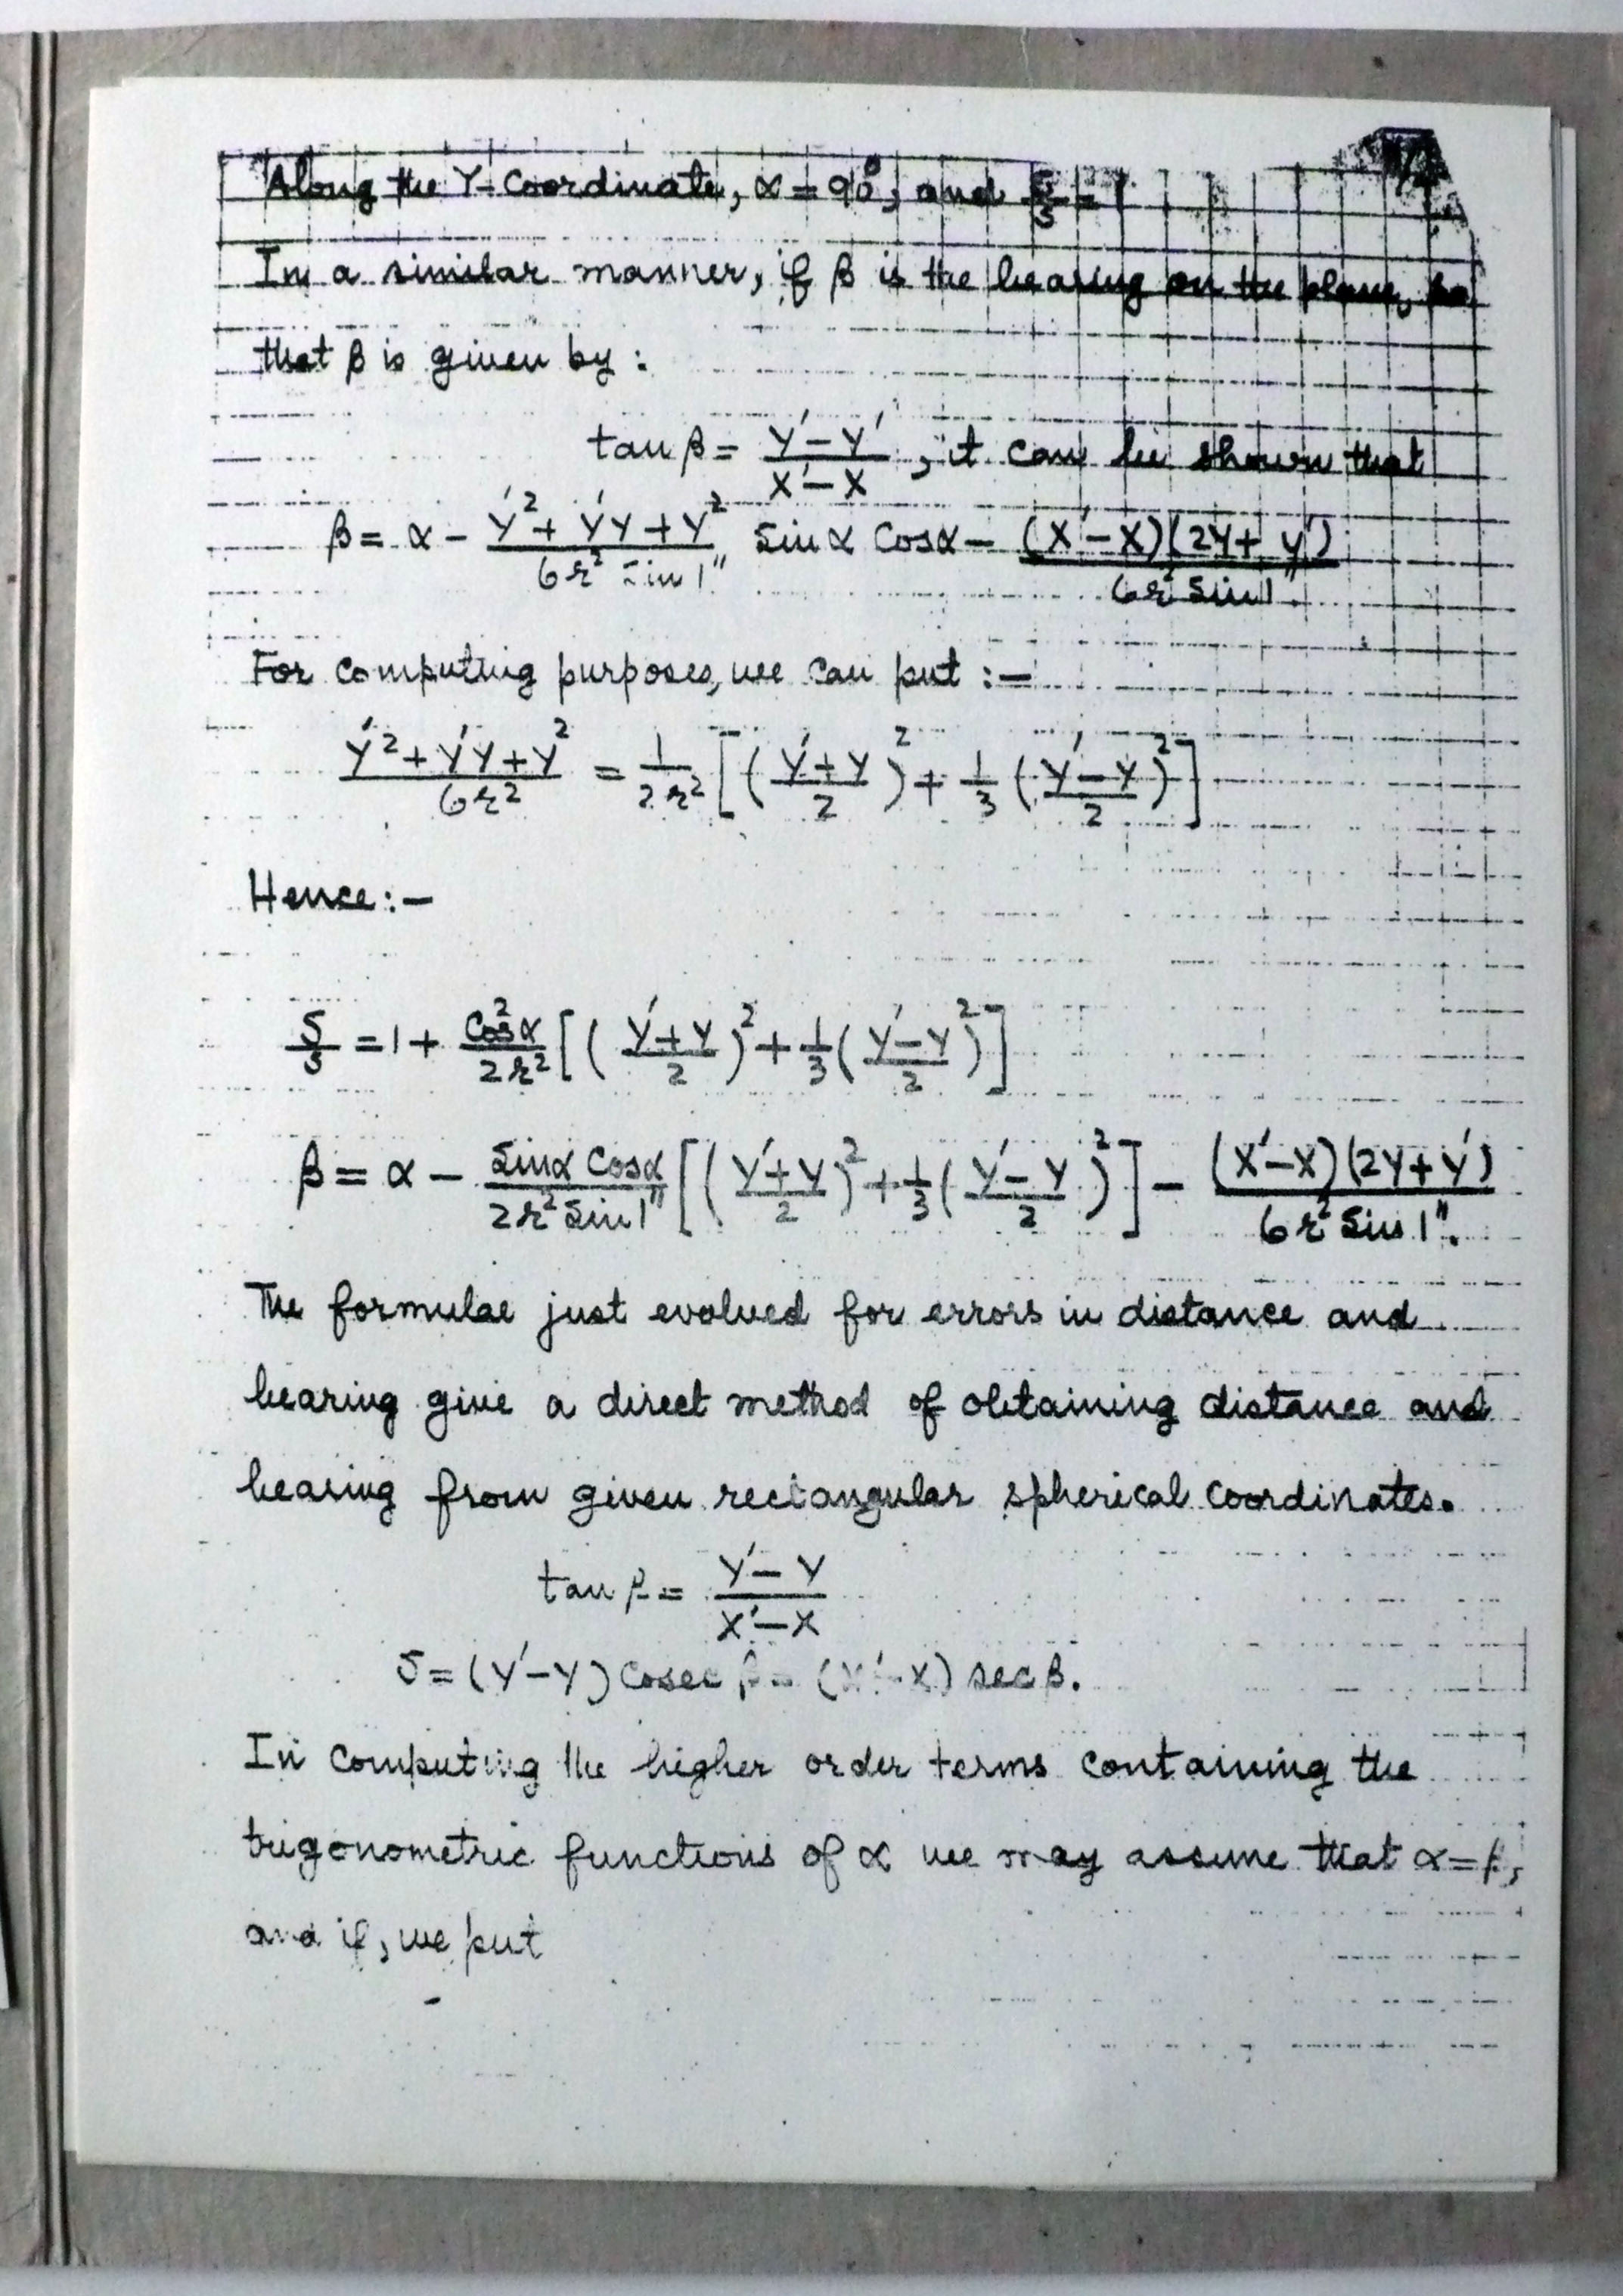 Along the Y-Coordinate, α = 90°, and S/s = 1
In a similar manner, if β is the bearing on the plane, so
that β is given by :
tan β = (Y′ − Y′)/(X′ − X) , it can be shown that
β = α − (Y′² + Y′Y + Y²)/(6r² Sin 1″) Sin α Cos α − (X′ − X)(2Y + Y′)/(6r² Sin 1″)
For computing purposes, we can put :−
(Y′² + Y′Y + Y²)/(6r²) = 1/(2r²) [((Y′ + Y)/2)² + 1/3 ((Y′ − Y)/2)²]
Hence :−
S/s = 1 + Cos²α/(2r²) [((Y′ + Y)/2)² + 1/3 ((Y′ − Y)/2)²]
β = α − (Sin α Cos α)/(2r² Sin 1″) [((Y′ + Y)/2)² + 1/3 ((Y′ − Y)/2)²] − (X′ − X)(2Y + Y′)/(6r² Sin 1″).
The formulae just evolved for errors in distance and
bearing give a direct method of obtaining distance and
bearing from given rectangular spherical coordinates.
tan β = (Y′ − Y)/(X′ − X)
S = (Y′ − Y) Cosec β = (X′ − X) sec β.
In computing the higher order terms containing the
trigonometric functions of α we may assume that α = β,
and if, we put